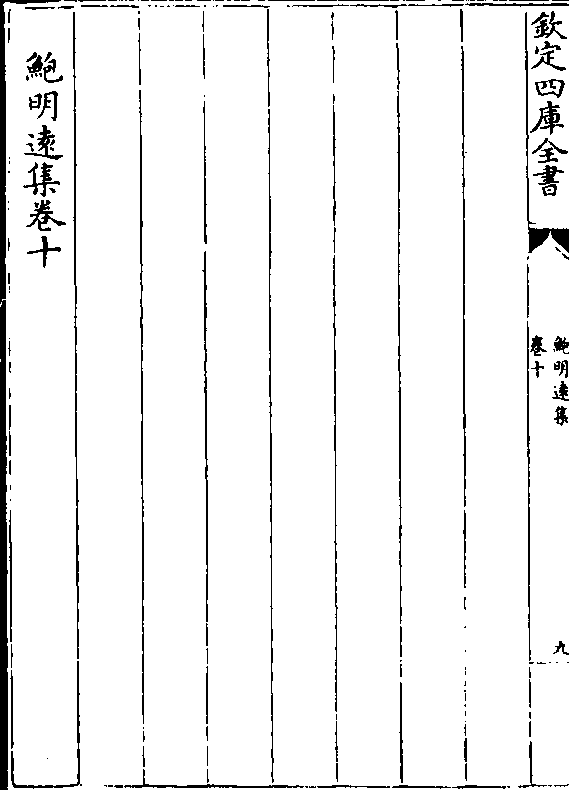 欽定四庫全書
鮑明遠集
卷十
九
鮑明遠集卷十